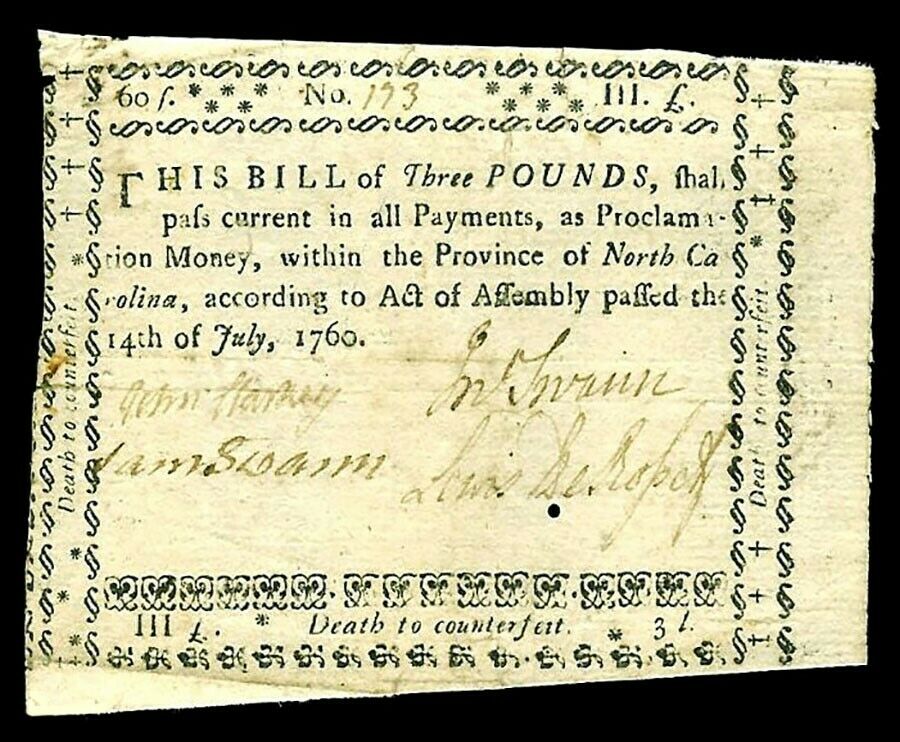 60 ſ. No. 193 III. £.
THIS BILL of Three POUNDS, ſhall
paſs current in all Payments, as Proclama-
tion Money, within the Province of North Ca
rolina, according to Act of Aſſembly paſſed the
14th of July, 1760.
John Starkey Jnº Swann
Sam Swann Lewis De Roſſet
III £. Death to counterfeit. 3 l.
Death to counterfeit
Death to counterfeit